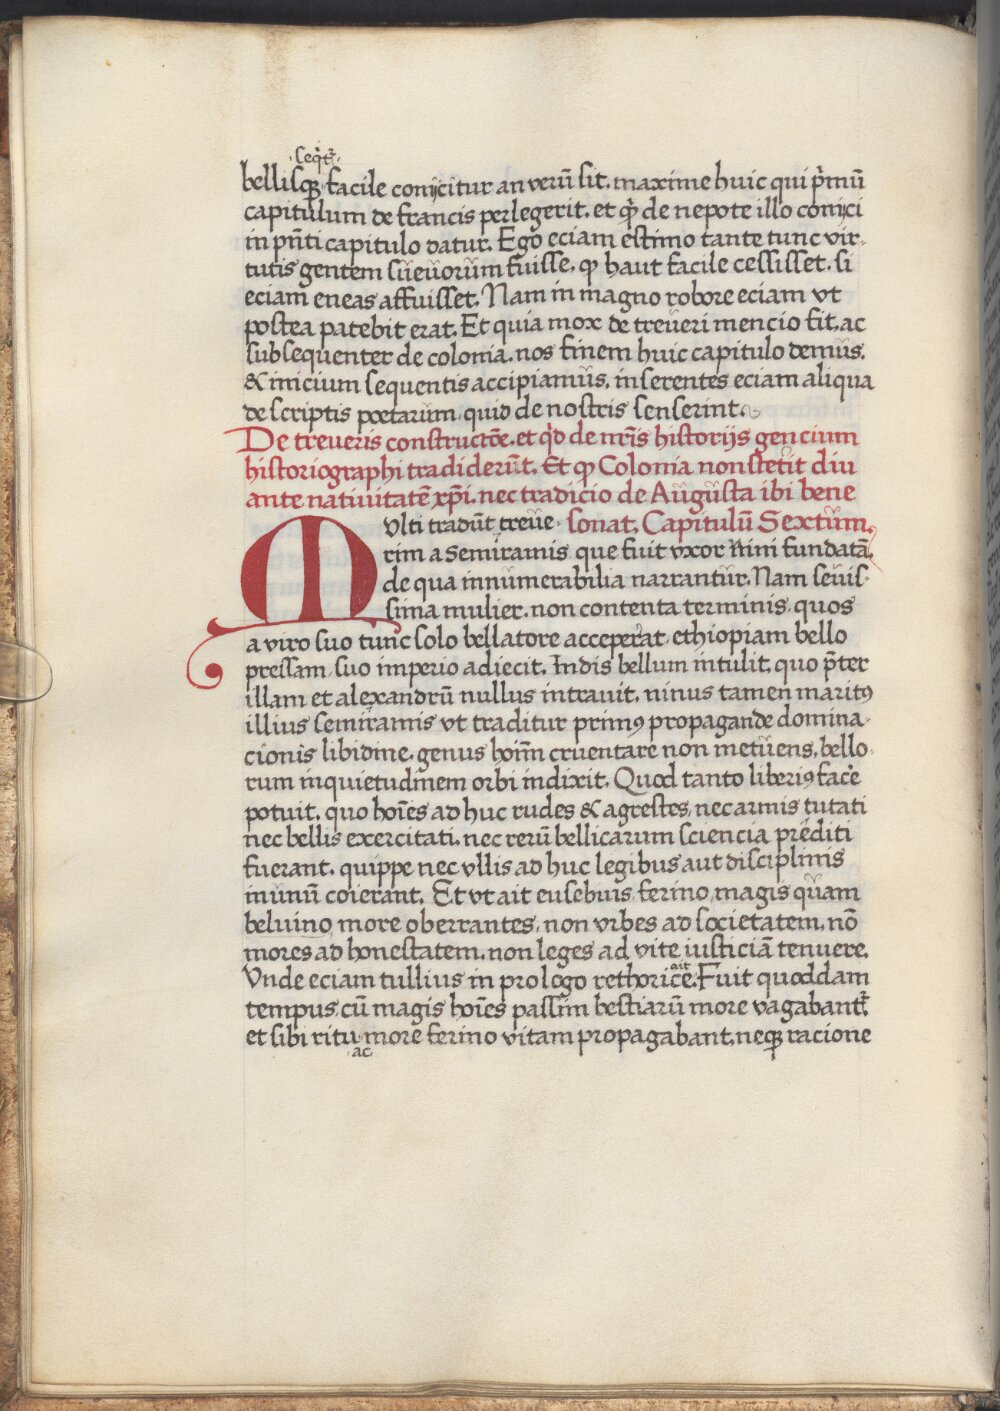 ·seqͥtᷣ·
bellisqꝫ facile conijcitur an verū sit. maxime huic qui pͥmū
capitulum de francis perlegerit. et qͥ de nepote illo conijci
in pn̄ti capitulo datur. Ego eciam estimo tante tunc vir-
tutis gentem sueuorum fuisse. ꝙ haut facile cessisset. si
eciam eneas affuisset. Nam in magno robore eciam vt
postea patebit erat. Et quia mox de treueri mencio fit. ac
subsequenter de colonia. nos finem huic capitulo demus.
& inicium sequentis accipiamus. inserentes eciam aliqua
de scriptis poetarum quid de nostris senserint.
De treueris constructōe. et qͥd de nr̄is historijs gencium
historiographi tradiderunt. Et ꝙ Colonia non stetit diu
ante natiuitatē xp̄i. nec tradicio de Augusta ibi bene
Multi tradūt treue- sonat. Capitulū Sextum.
rim a Semiramis que fuit vxor Nini fundatā.
de qua innumerabilia narrantur. Nam seuis-
sima mulier. non contenta terminis quos
a viro suo tunc solo bellatore acceperat ethiopiam bello
pressam suo imperio adiecit. Indis bellum intulit. quo p̄ter
illam et alexandrū nullus intrauit. ninus tamen maritꝰ
illius semiramis vt traditur primꝰ propagande domina-
cionis libidine. genus hoīm cruentare non metuens. bello-
rum inquietudinem orbi indixit. Quod tanto liberiꝰ facē
potuit. quo hoīes ad huc rudes & agrestes, nec armis tutati
nec bellis exercitati. nec rerū bellicarum sciencia prediti
fuerant. quippe nec vllis ad huc legibus aut disciplinis
in unū coierant. Et vt ait eusebius ferino magis quam
beluino more oberrantes. non vrbes ad societatem. nō
mores ad honestatem. non leges ad vite iusticiā tenuere.
Vnde eciam tullius in prologo rethorice. ait Fuit quoddam
tempus. cū magis hoīes passim bestiarū more vagabantᷣ.
et sibi ritu more ferino vitam propagabant. neqꝫ racione
·ac